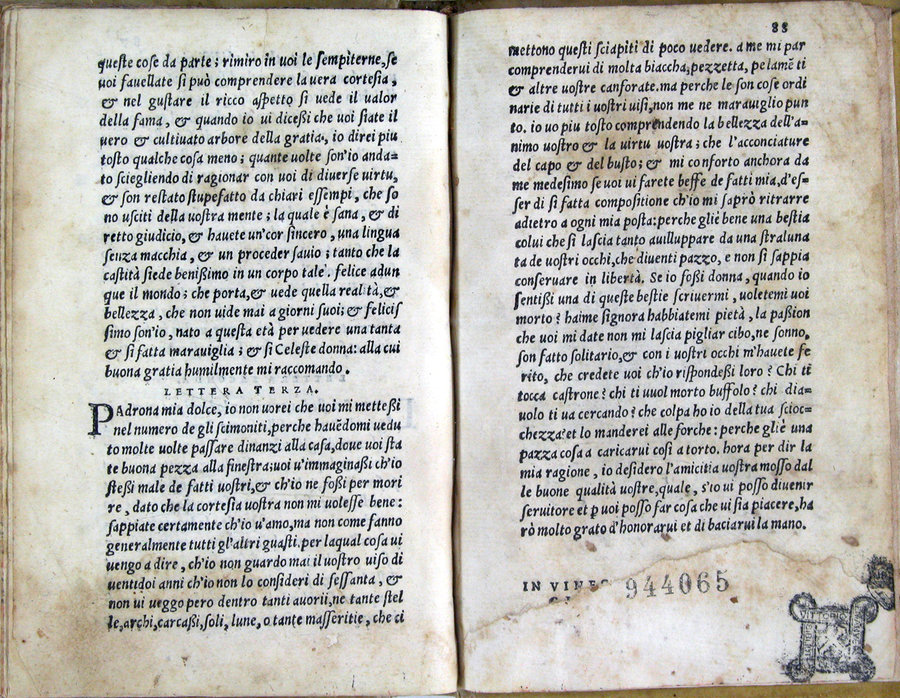 queste cose da parte; rimiro in uoi le sempiterne, se
uoi fauellate si può comprendere la uera cortesia,
& nel gustare il ricco aspetto si uede il ualor
della fama, & quando io ui dicessi che uoi siate il
uero & cultiuato arbore della gratia, io direi piu
tosto qualche cosa meno; quante uolte son'io anda=
to sciegliendo di ragionar con uoi di diuerse uirtu,
& son restato stupefatto da chiari essempi, che so
no usciti della uostra mente; la quale è sana, & di
retto giudicio, & hauete un'cor sincero, una lingua
senza macchia, & un proceder sauio; tanto che la
castità siede benissimo in un corpo tale. felice adun
que il mondo; che porta, & uede quella realità, &
bellezza, che non uide mai a giorni suoi; & felicis
simo son'io, nato a questa età per uedere una tanta
& si fatta marauiglia; & si Celeste donna: alla cui
buona gratia humilmente mi raccomando.
LETTERA TERZA.
PAdrona mia dolce, io non uorei che uoi mi mettessi
nel numero de gli scimoniti, perche hauēdomi uedu
to molte uolte passare dinanzi alla casa, doue uoi sta
te buona pezza alla finestra; uoi u'immaginassi ch'io
stessi male de fatti uostri, & ch'io ne fossi per mori
re, dato che la cortesia uostra non mi uolesse bene:
sappiate certamente ch'io u'amo, ma non come fanno
generalmente tutti gl'altri guasti. per laqual cosa ui
uengo a dire, ch'io non guardo mai il uostro uiso di
uentidoi anni ch'io non lo consideri di sessanta, &
non ui ueggo pero dentro tanti auorii, ne tante stel
le, archi, carcassi, soli, lune, o tante masseritie, che ci
88
mettono questi sciapiti di poco uedere. a me mi par
comprenderui di molta biaccha, pezzetta, pelamē ti
& altre uostre canforate. ma perche le son cose ordi
narie di tutti i uostri uisi, non me ne marauiglio pun
to. io uo piu tosto comprendendo la bellezza dell'a=
nimo uostro & la uirtu uostra; che l'acconciature
del capo & del busto; & mi conforto anchora da
me medesimo se uoi ui farete beffe de fatti mia, d'es=
ser di si fatta compositione ch'io mi saprò ritrarre
adietro a ogni mia posta: perche glié bene una bestia
colui che si lascia tanto auilluppare da una straluna
ta de uostri occhi, che diuenti pazzo, e non si sappia
conseruare in libertà. Se io fossi donna, quando io
sentissi una di queste bestie scriuermi, uoletemi uoi
morto? haime signora habbiatemi pietà, la passion
che uoi mi date non mi lascia pigliar cibo, ne sonno,
son fatto solitario, & con i uostri occhi m'hauete fe
rito, che credete uoi ch'io rispondessi loro? Chi ti
tocca castrone? chi ti uuol morto buffolo? chi dia=
uolo ti ua cercando? che colpa ho io della tua scioc=
chezza? et lo manderei alle forche: perche glié una
pazza cosa a caricarui cosi a torto. hora per dir la
mia ragione, io desidero l'amicitia uostra mosso dal
le buone qualità uostre, quale, s'io ui posso diuenir
seruitore et p uoi posso far cosa che ui sia piacere, ha
rò molto grato d'honorarui et di baciarui la mano.
IN VINE
944065